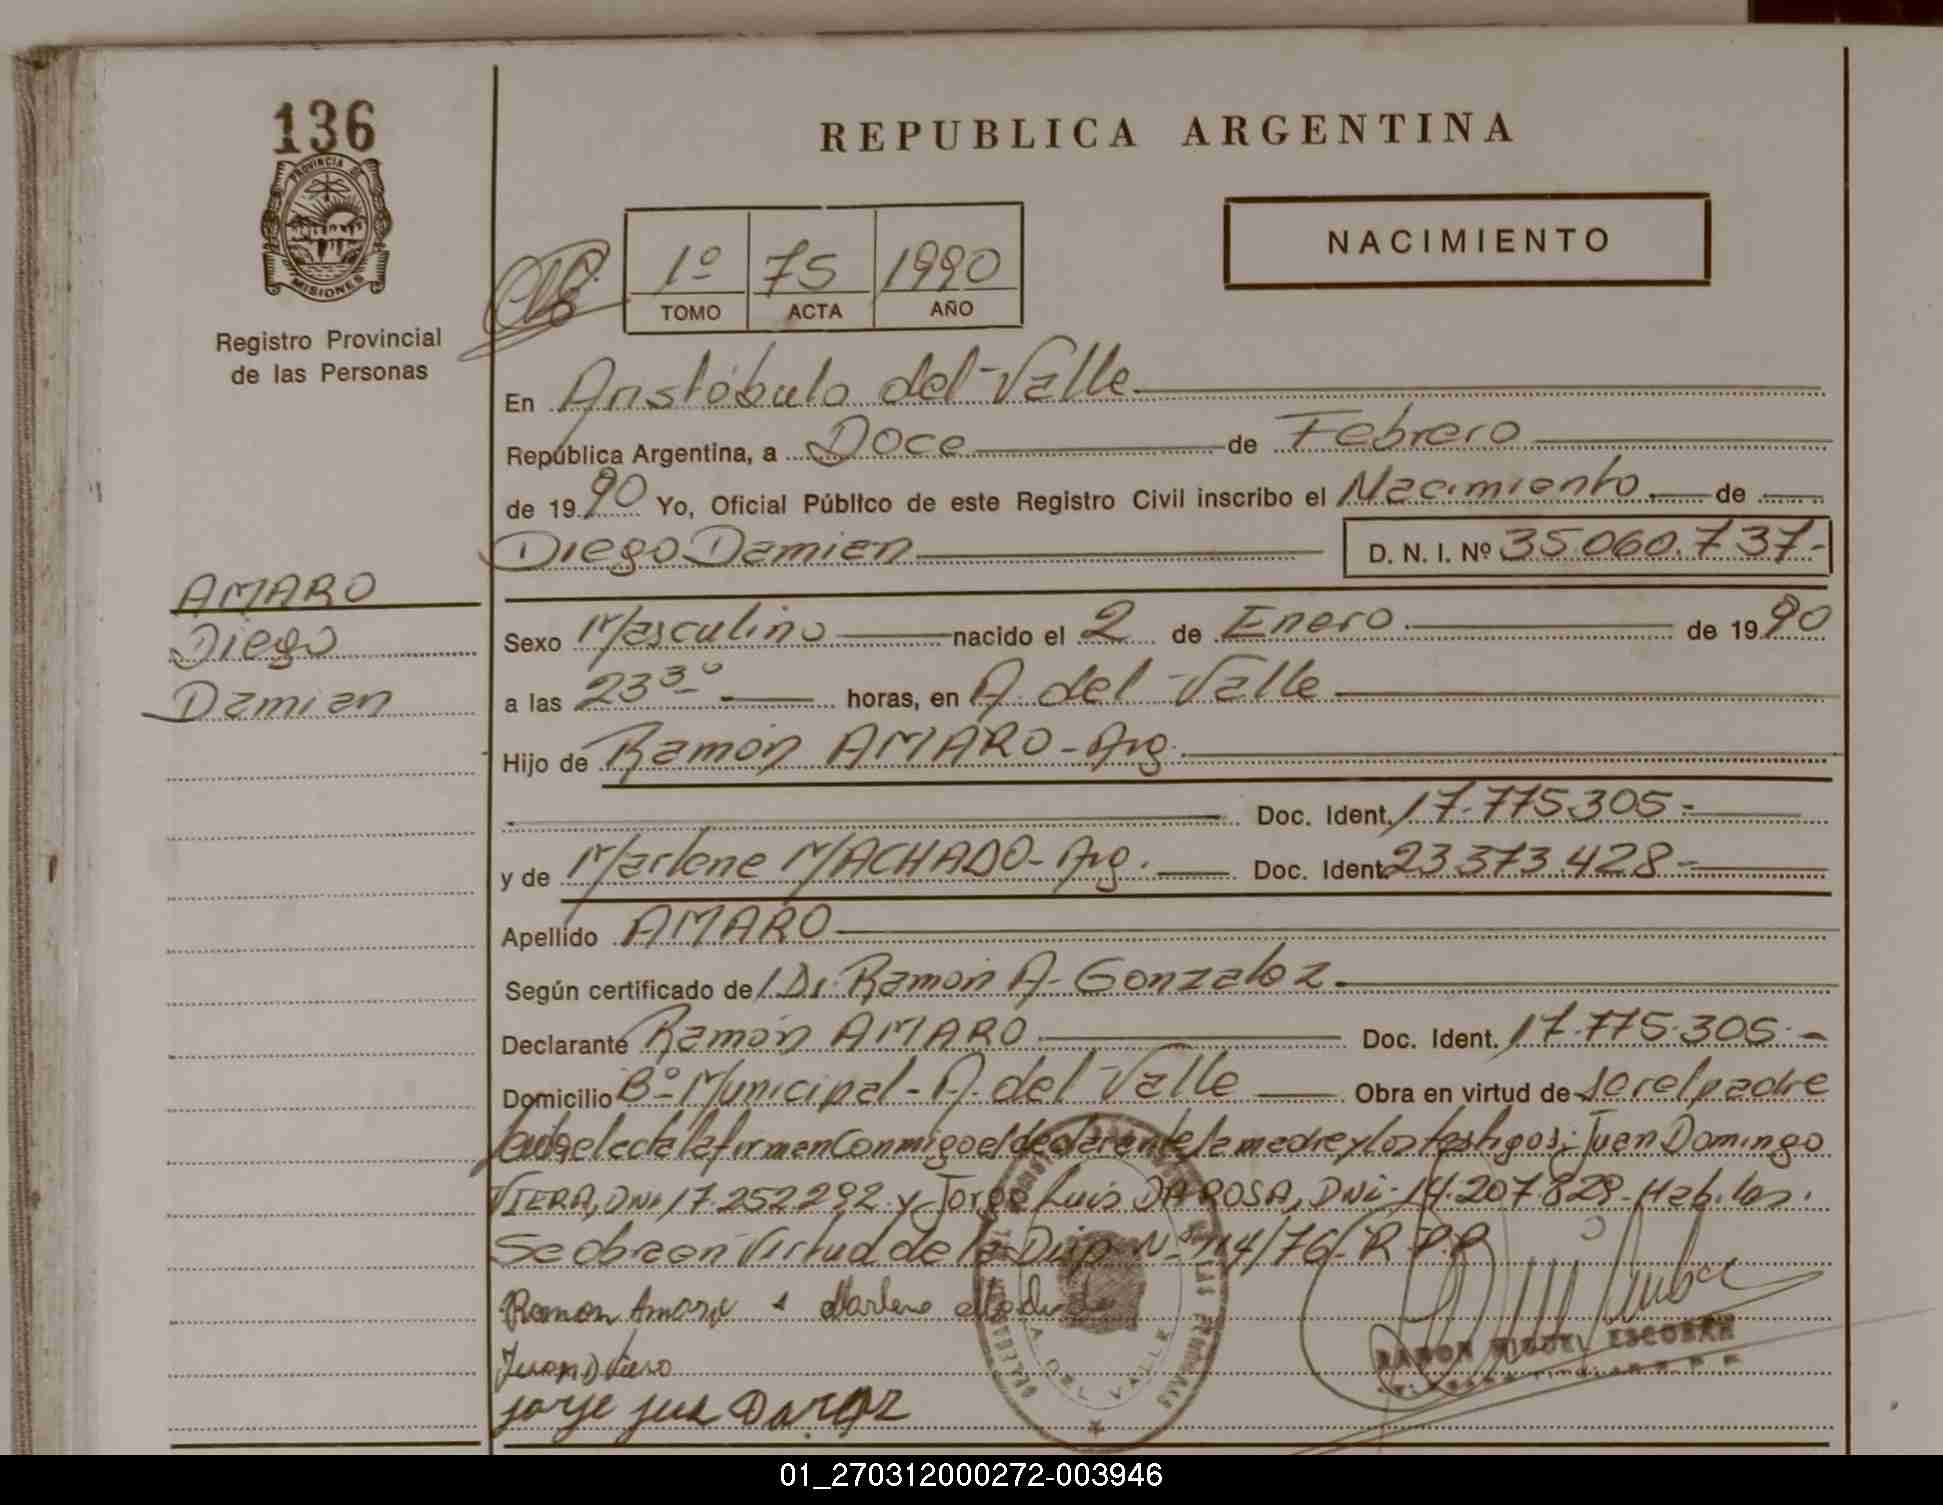 136
PROVINCIA DE
MISIONES
Registro Provincial
de las Personas
REPUBLICA ARGENTINA
1º 75 1990
TOMO ACTA AÑO
NACIMIENTO
En Aristóbulo del Valle
República Argentina, a Doce de Febrero
de 1990 Yo, Oficial Público de este Registro Civil inscribo el Nacimiento de
Diego Damian D. N. I. Nº 35060.737-
AMARO
Diego
Damian
Sexo Masculino nacido el 2 de Enero de 1990
a las 23 3º horas, en A. del Valle
Hijo de Ramón AMARO - Arg.
Doc. Ident. 17.775.305-
y de Marlene MACHADO - Arg. Doc. Ident. 23373.428-
Apellido AMARO
Según certificado de / Dr. Ramón A. Gonzalez
Declarante Ramón AMARO Doc. Ident. 17.775.305.-
Domicilio Bº Municipal - A. del Valle Obra en virtud de ser el padre
el acta la firman conmigo el declarante la madre y los testigos: Juan Domingo
VIERA, DNi 17.252292 y Jorge Luis DAROSA, DNi 14.207.829 - Hab. los.
Se obra en Virtud de la Disp. Nº 114/76 - R.P.P
Ramon Amaro Marlene
Juan D Viero
Jorge Luis Daroza
A DEL VALLE
RAMON MIGUEL ESCOBAR
01_270312000272-003946